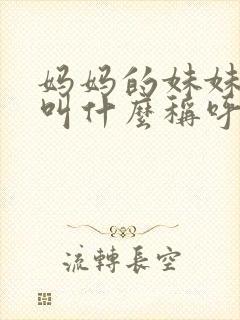 妈妈的妹妹
叫什麼稱呼
流轉長空